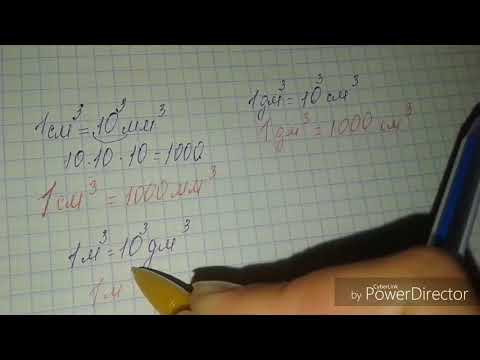 1см³ = 10³мм³
10·10·10 = 1000
1см³ = 1000мм³
1м³ = 10³дм³
1м
1дм³ = 10³см³
1дм³ = 1000см³
CyberLink
by PowerDirector